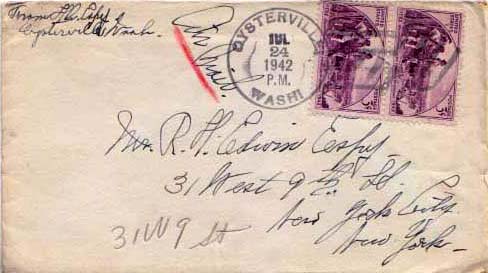 From H.A. Espy
Oysterville, Wash.
Air Mail
OYSTERVILLE
JUL
24
1942
P.M.
WASH
Mr. R. H. Edwin Espy
31 West 9th St.
New York City
New York
31 W 9 St